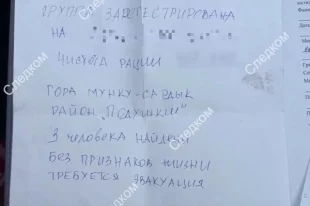 ГРУППА ЗАРЕГЕСТРИРОВАНА
НА
ЧАСТОТА РАЦИИ
ГОРА МУНКУ-САРДЫК
РАЙОН "ПОДУШКИ"
3 ЧЕЛОВЕКА НАЙДЕНЫ
БЕЗ ПРИЗНАКОВ ЖИЗНИ
ТРЕБУЕТСЯ ЭВАКУАЦИЯ
Следком
Следком
Следком
Следком
Следком